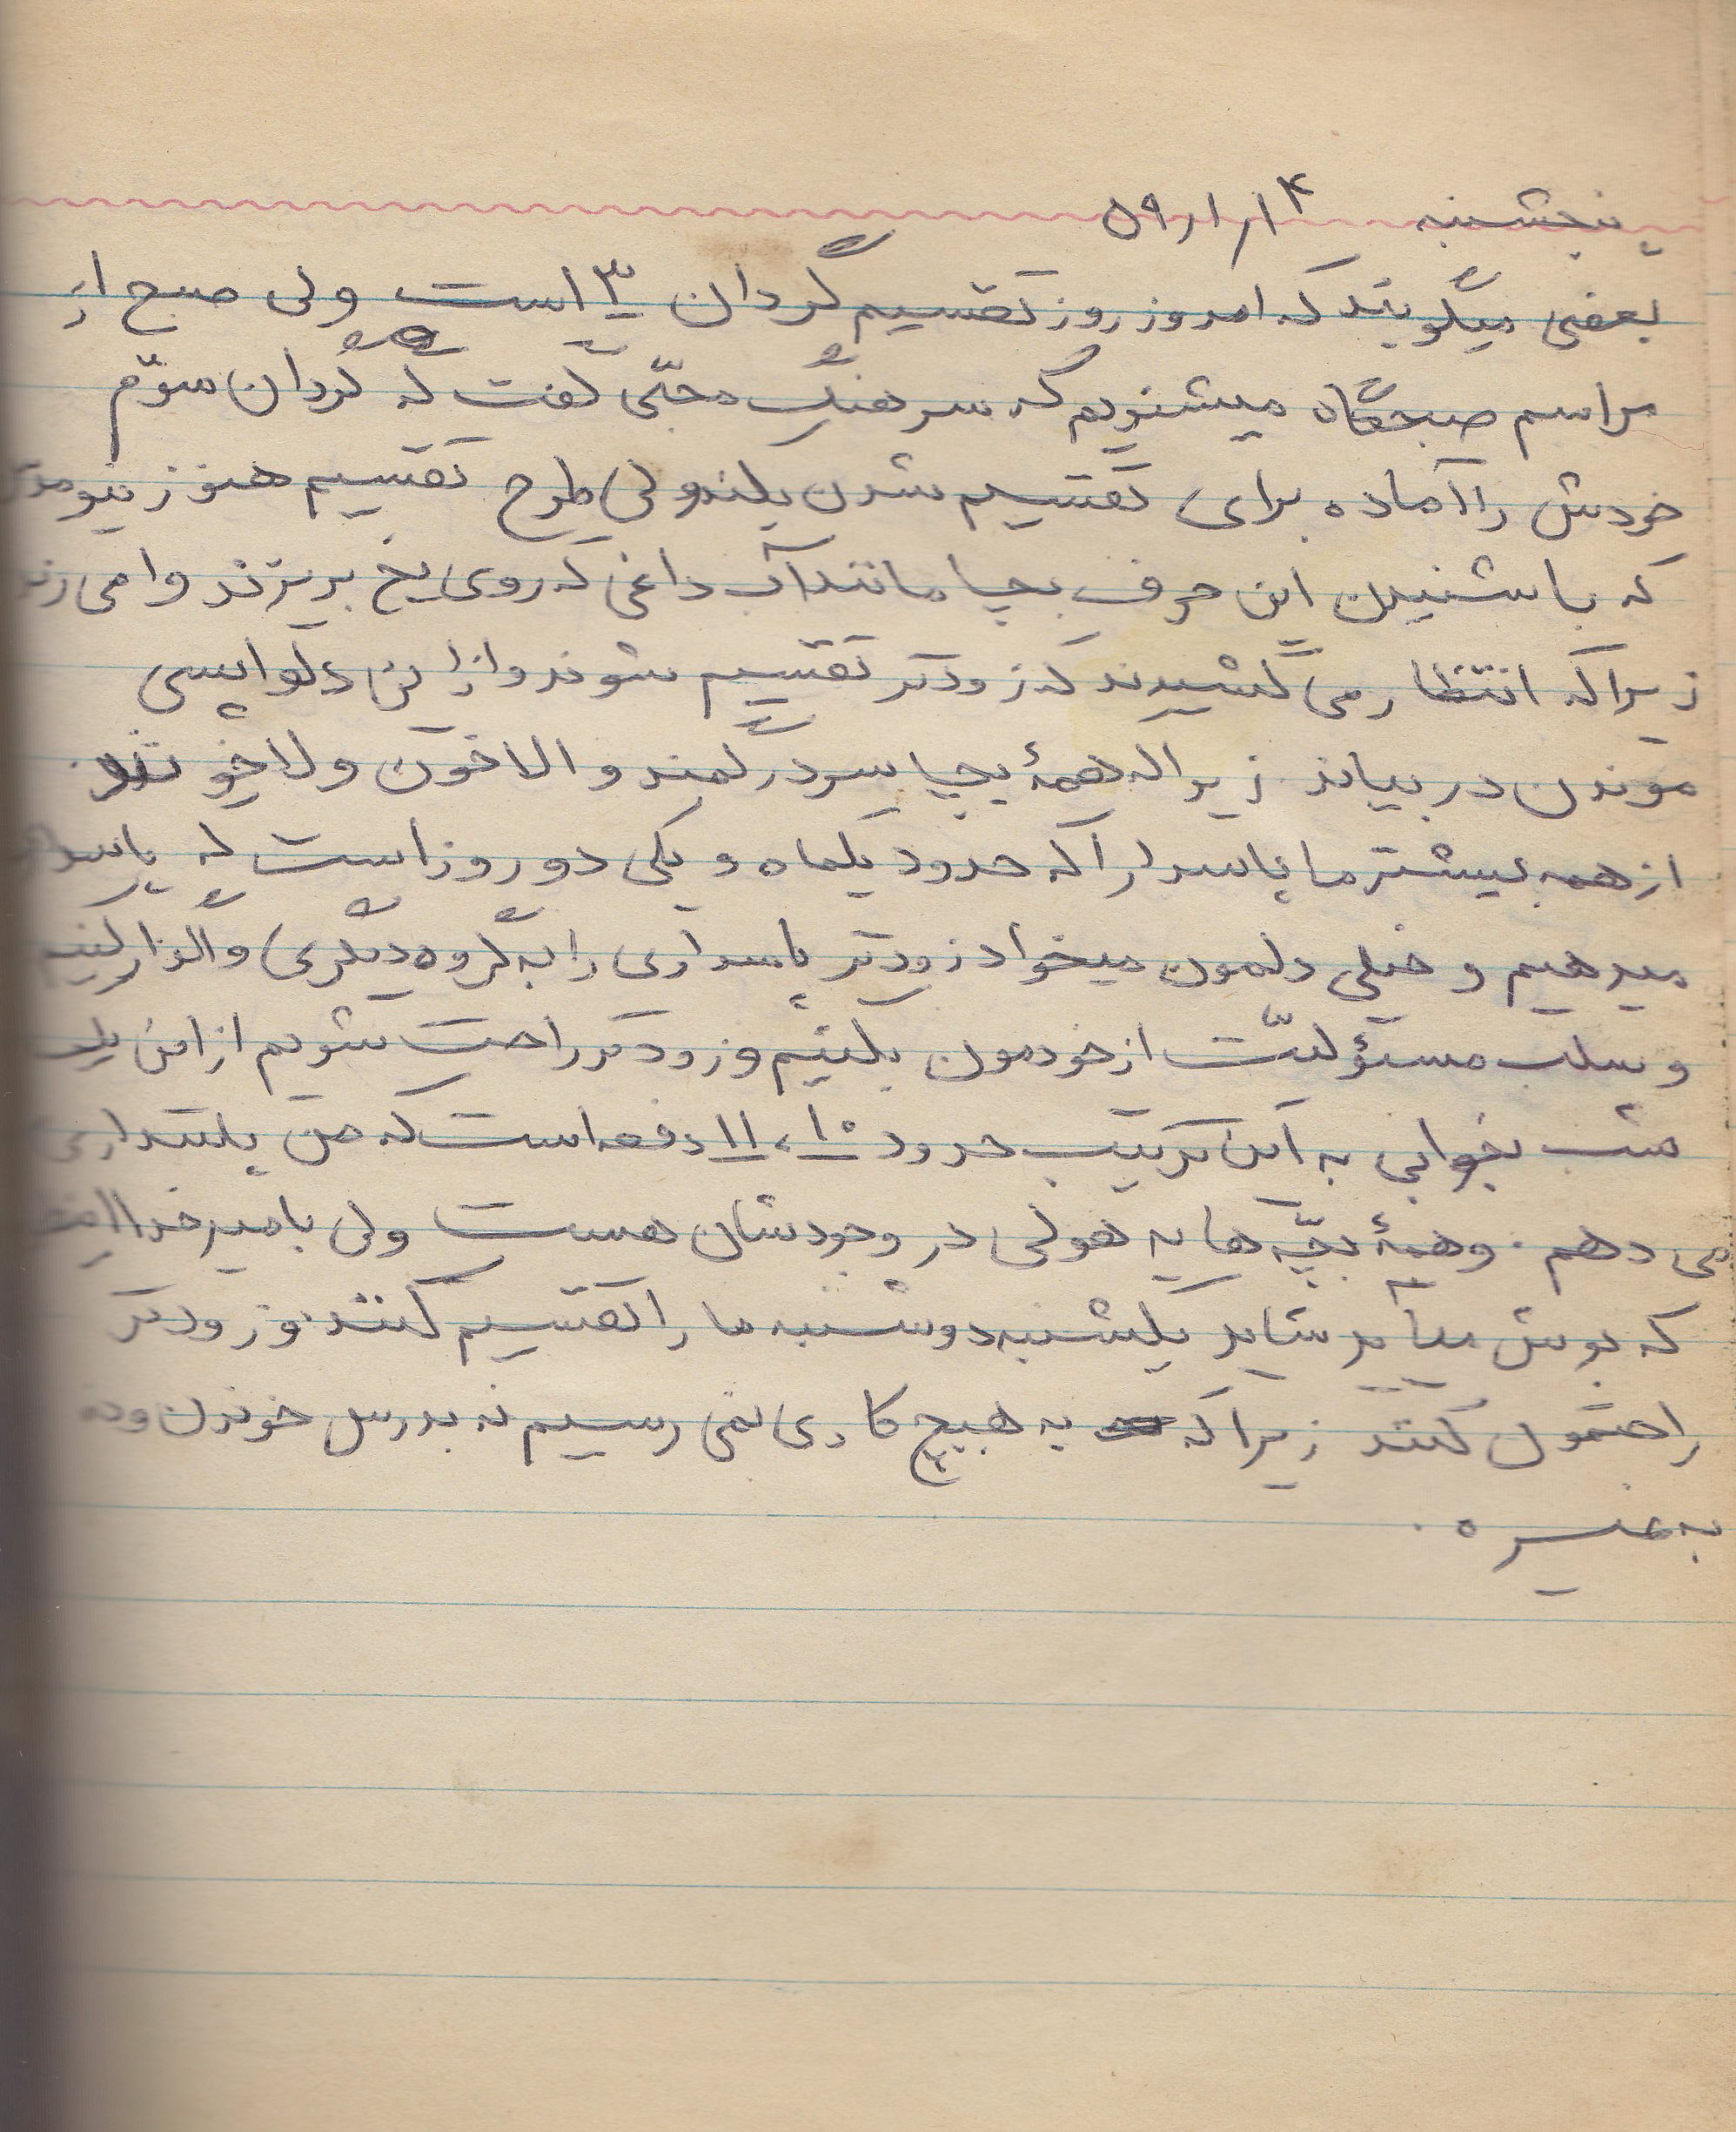 پنجشنبه ۵۹/۱/۱۴
بعضی میگویند که امروز روز تقسیم گردان ۳ است ولی صبح از
مراسم صبحگاه میشنویم که سرهنگ محبّی گفت که گردان سوّم
خودش را آماده برای تقسیم شدن بکند ولی طرح تقسیم هنوز نیومده
که با شنیدن این حرف بچا مانند آب داغی که روی یخ بریزند وا می زند
زیرا که انتظار می کشیدند که زودتر تقسیم شوند و از این دلواپسی
موندن در بیاند زیرا که همهٔ بچا سردرگمند و الاخون ولاخوند
از همه بیشتر ما پاسدارا که حدود یکماه و یکی دو روز است که پاسداری
میدهیم و خیلی دلمون میخواد زودتر پاسداری را به گروه دیگری واگذار کنیم
و سلب مسئولیّت از خودمون بکنیم و زودتر راحت شویم از این
شب بخوابی به این ترتیب حدود ۱۰، ۱۱ دفعه است که من پاسداری
می دهم. و همهٔ بچّه ها یه هولی در وجودشان هست ولی بامید خدا
که بوش میآید شاید یکشنبه دوشنبه ما را تقسیم کنند و زودتر
راحتمون کنند زیرا که به هیچ کاری نمی رسیم نه بدرس خوندن و نه
به غیره.